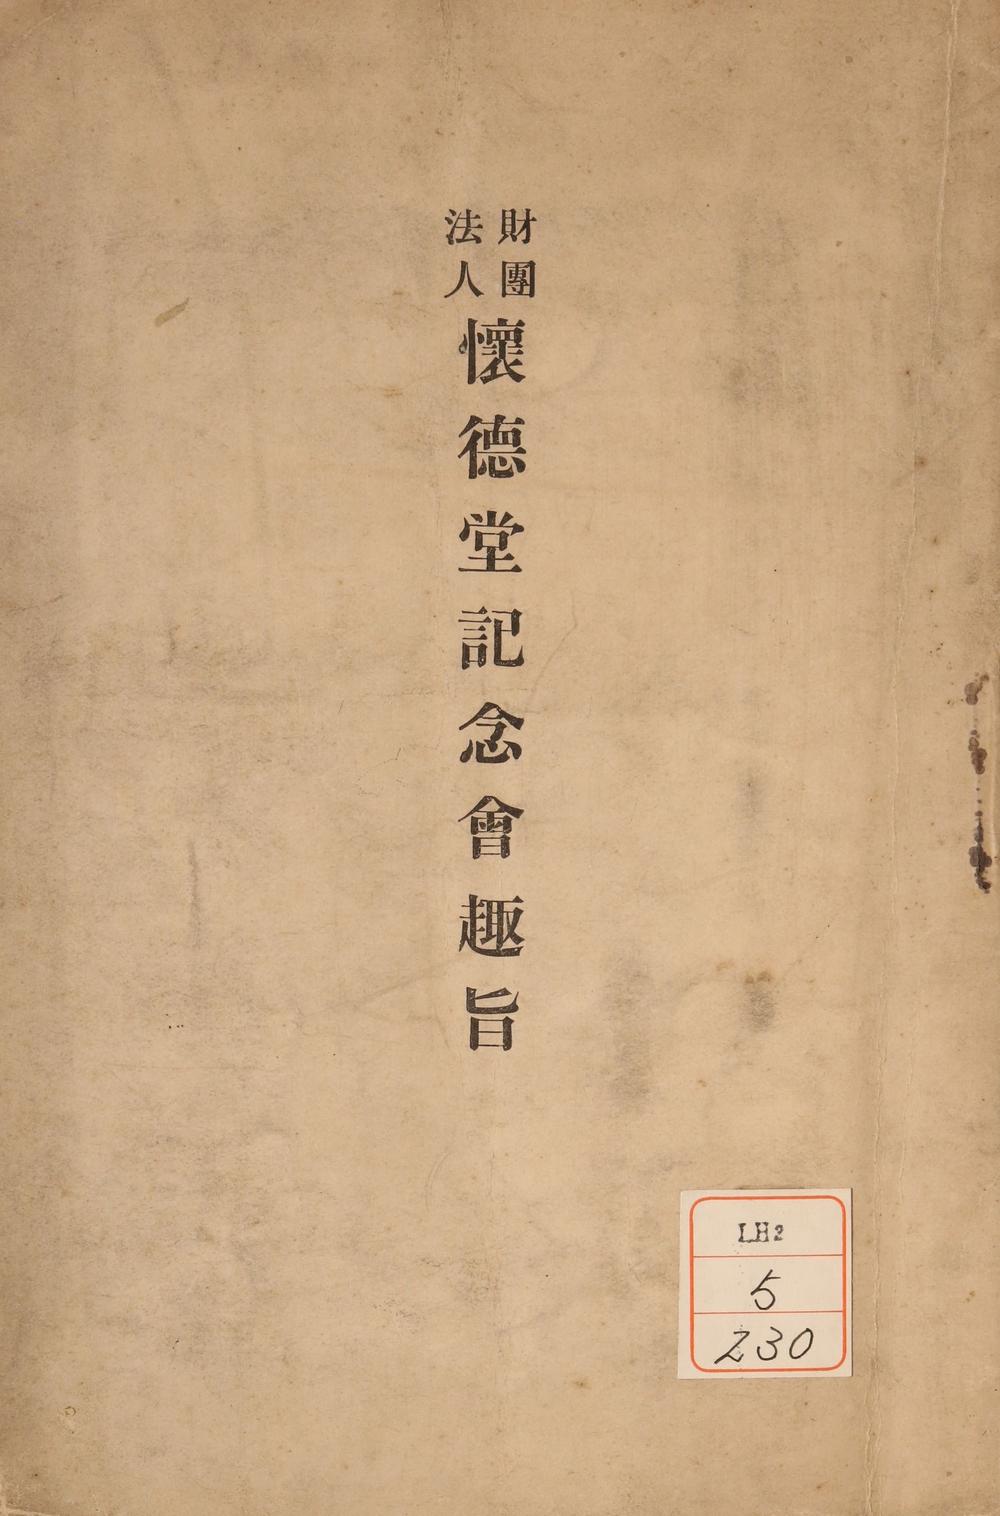 財團
法人
懷德堂記念會趣旨
LH2
5
230